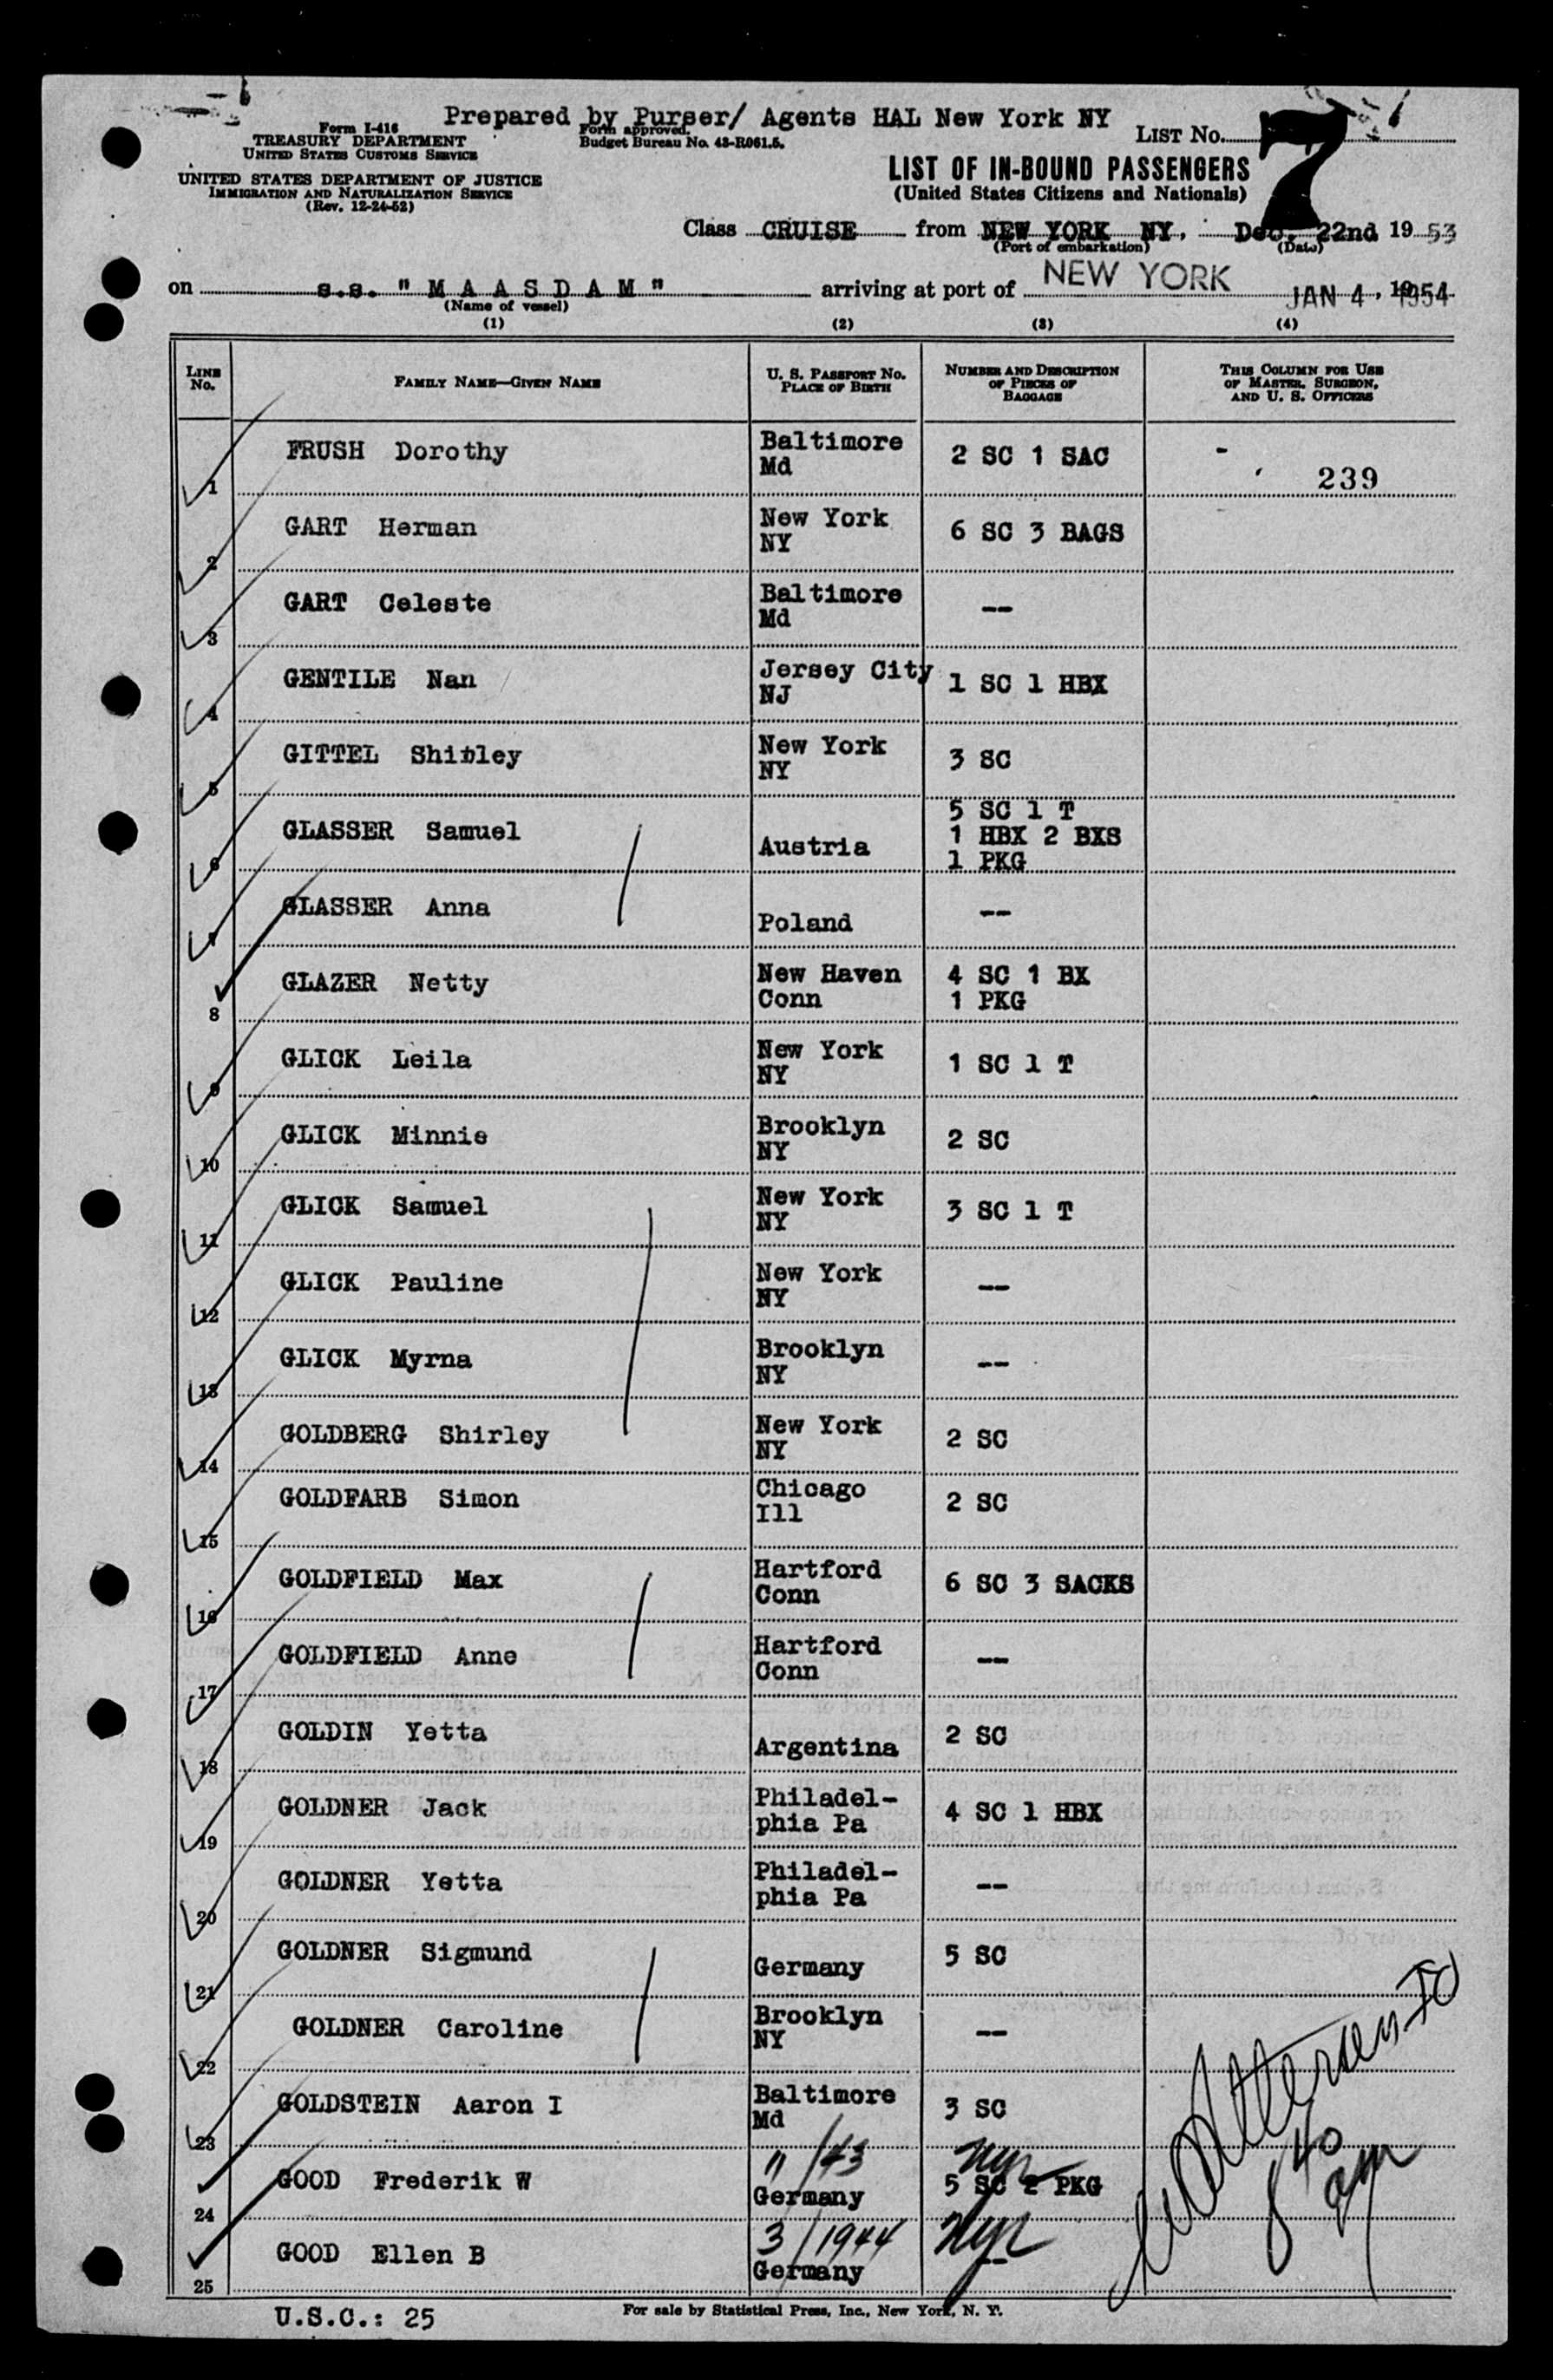 Prepared by Purser/ Agents HAL New York NY
Form I-416
TREASURY DEPARTMENT
UNITED STATES CUSTOMS SERVICE
UNITED STATES DEPARTMENT OF JUSTICE
IMMIGRATION AND NATURALIZATION SERVICE
(Rev. 12-24-52)
Form approved.
Budget Bureau No. 43-R061.5.
LIST NO. 7
LIST OF IN-BOUND PASSENGERS
(United States Citizens and Nationals)
Class CRUISE from NEW YORK NY, Dec. 22nd 1953
(Port of embarkation) (Date)
on s.s. "M A A S D A M" arriving at port of NEW YORK JAN 4, 1954
(Name of vessel)
(1) (2) (3) (4)
LINE NO. FAMILY NAME—GIVEN NAME U. S. PASSPORT NO. PLACE OF BIRTH NUMBER AND DESCRIPTION OF PIECES OF BAGGAGE THIS COLUMN FOR USE OF MASTER, SURGEON, AND U. S. OFFICERS
1 FRUSH Dorothy Baltimore Md 2 SC 1 SAC - 239
2 GART Herman New York NY 6 SC 3 BAGS
3 GART Celeste Baltimore Md --
4 GENTILE Nan Jersey City NJ 1 SC 1 HBX
5 GITTEL Shibley New York NY 3 SC
6 GLASSER Samuel Austria 5 SC 1 T 1 HBX 2 BXS 1 PKG
7 GLASSER Anna Poland --
8 GLAZER Netty New Haven Conn 4 SC 1 BX 1 PKG
9 GLICK Leila New York NY 1 SC 1 T
10 GLICK Minnie Brooklyn NY 2 SC
11 GLICK Samuel New York NY 3 SC 1 T
12 GLICK Pauline New York NY --
13 GLICK Myrna Brooklyn NY --
14 GOLDBERG Shirley New York NY 2 SC
15 GOLDFARB Simon Chicago Ill 2 SC
16 GOLDFIELD Max Hartford Conn 6 SC 3 SACKS
17 GOLDFIELD Anne Hartford Conn --
18 GOLDIN Yetta Argentina 2 SC
19 GOLDNER Jack Philadel-phia Pa 4 SC 1 HBX
20 GOLDNER Yetta Philadel-phia Pa --
21 GOLDNER Sigmund Germany 5 SC
22 GOLDNER Caroline Brooklyn NY --
23 GOLDSTEIN Aaron I Baltimore Md 3 SC
24 GOOD Frederik W 11/43 Germany nyc 5 SC 2 PKG
25 GOOD Ellen B 3/1944 Germany nyc --
8 40 am
U.S.C.: 25
For sale by Statistical Press, Inc., New York, N. Y.